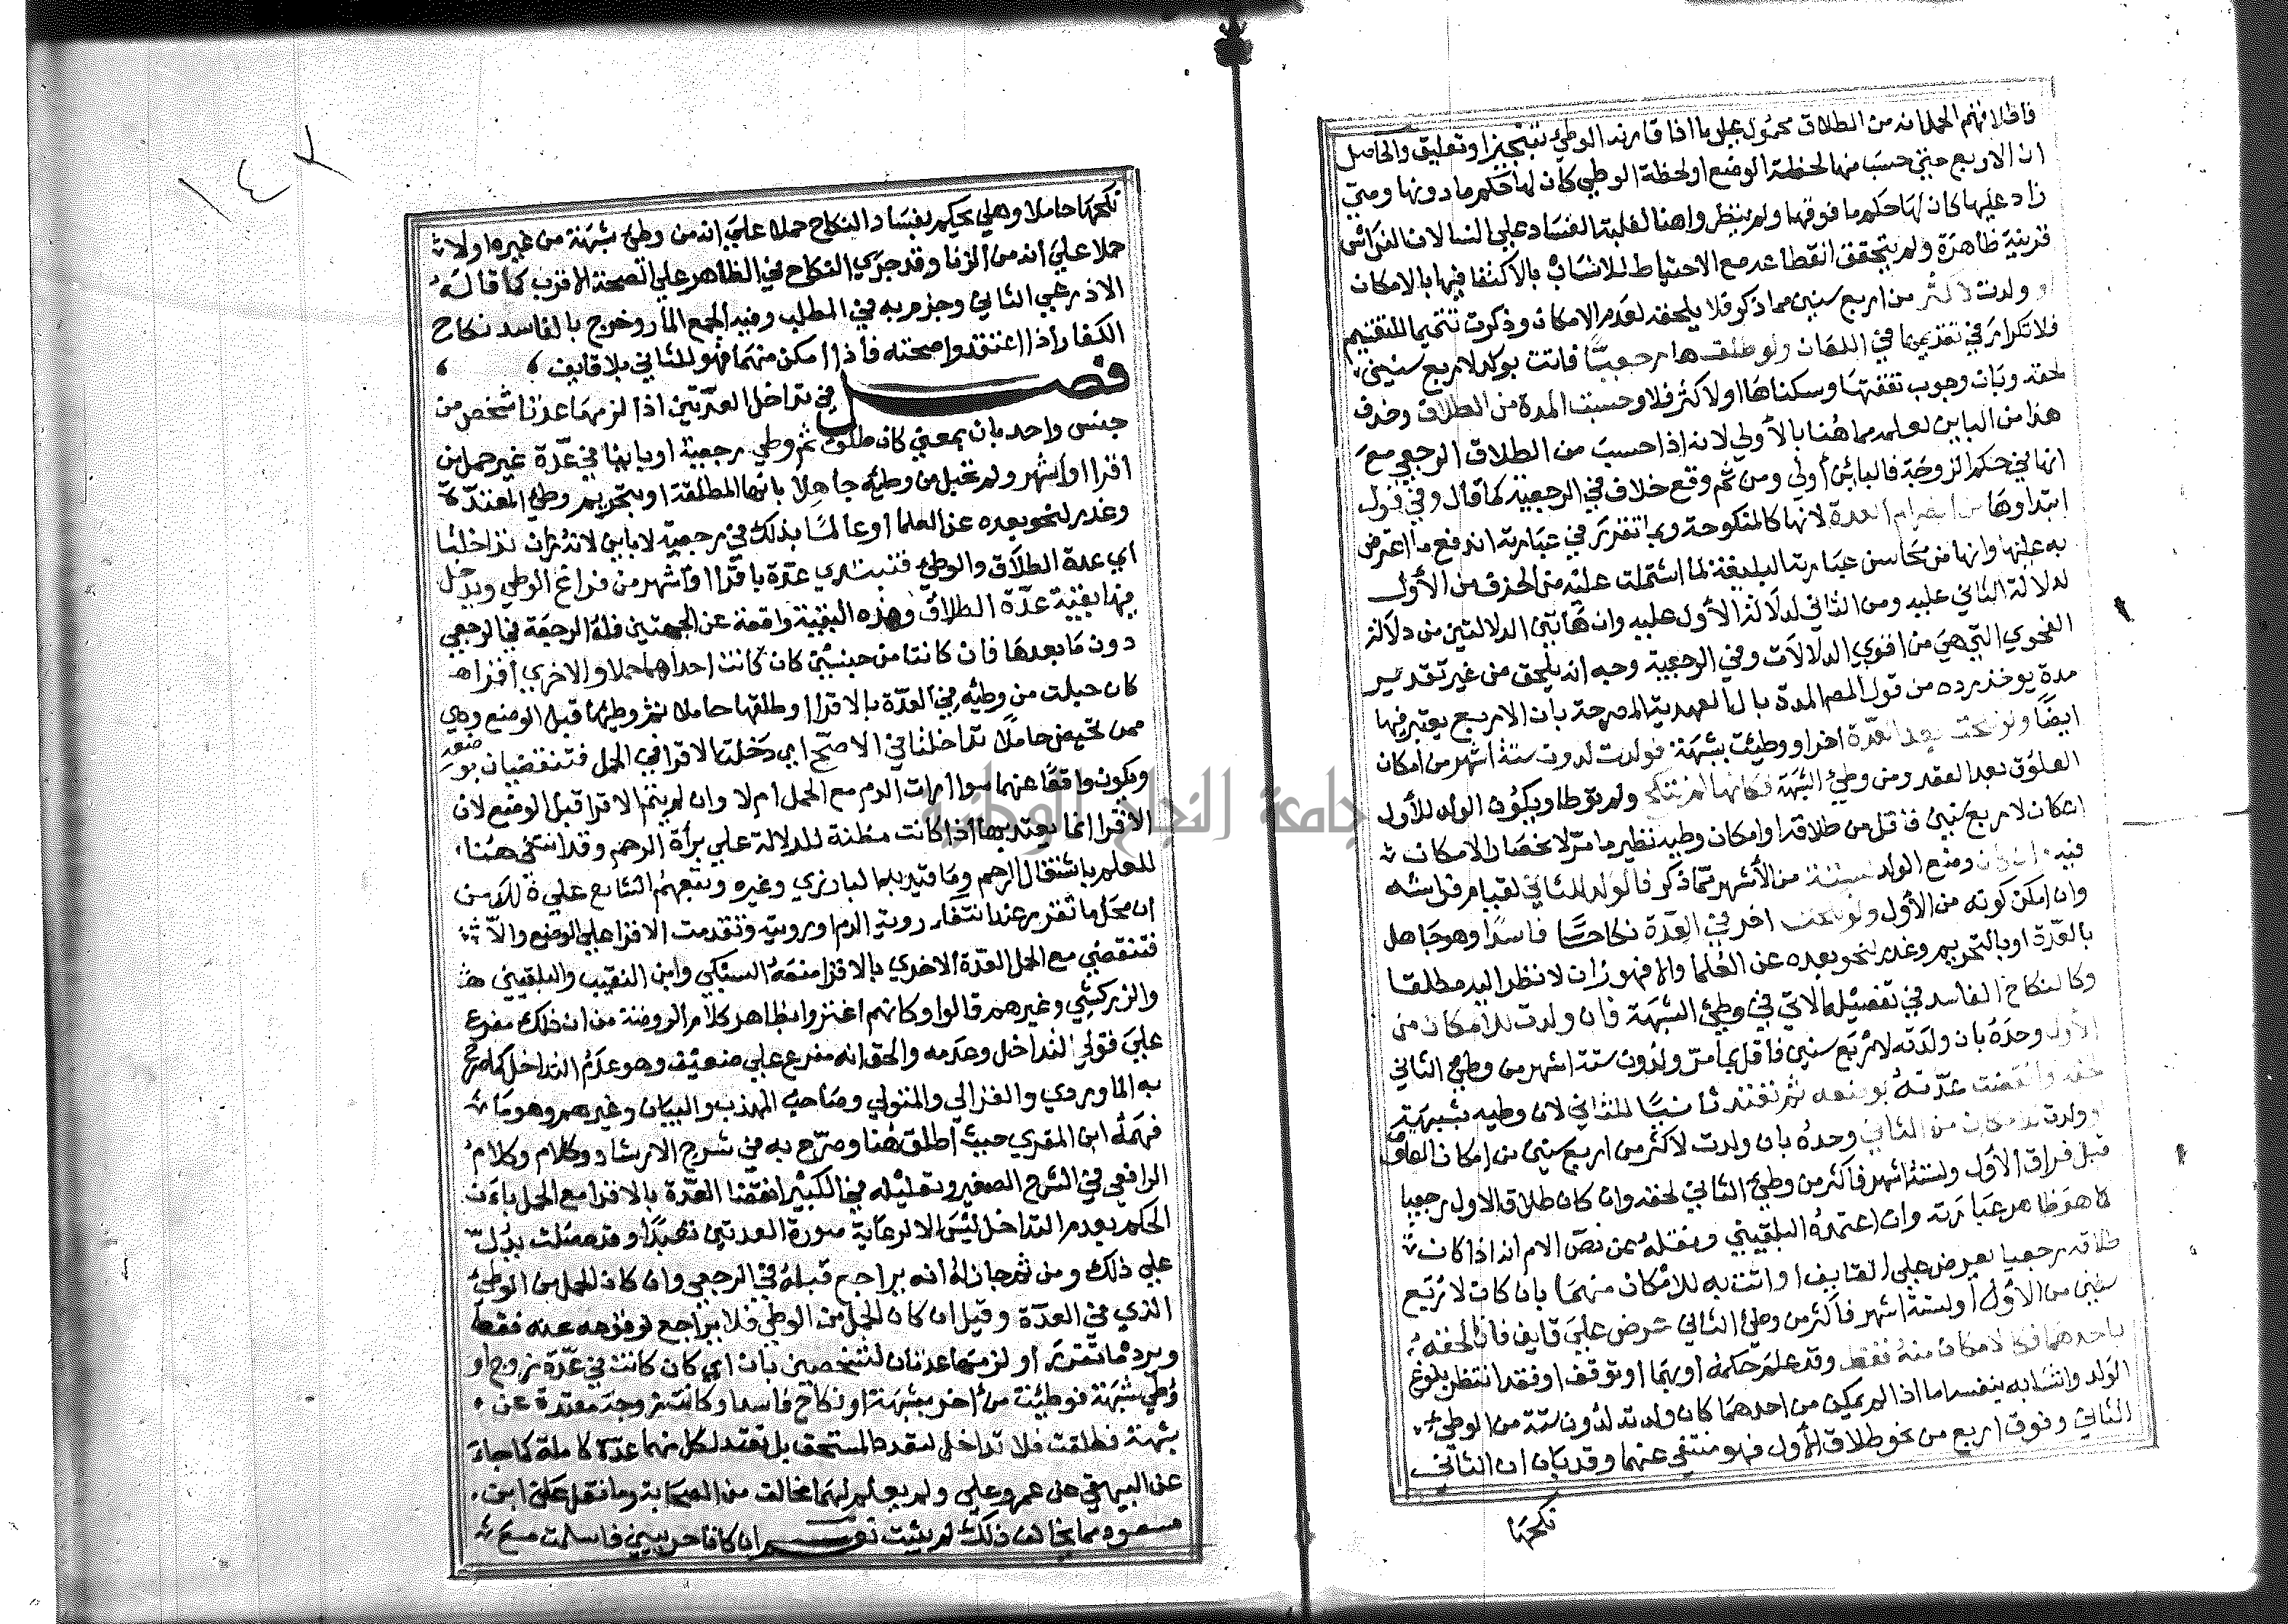 فاقل لا فهم الحمل انه من الطلاق محمول علي ما اذا قارنه الوطئ بتنجيز او تعليق والحاصل
ان الاربع متي حسب منها لحظة الوضع او لحظة الوطي كان لها حكم ما دونها ومتي
زاد عليها كان لها حكم ما فوقها ولم ينظروا هنا لغلبة الفساد علي النسا لان الفراش
قرينة ظاهرة ولم يتحقق انقطاعه مع الاحتياط للانساب بالاكتفا فيها بالامكان
او ولدت لاكثر من اربع سنين مما ذكر فلا يلحقه لعدم الامكان وذكرت تتميما للتقسيم
فلا تكرار في تقديمها في اللعان ولو طلقها رجعيا فاتت بولد لاربع سنين
لحقه وبان وجوب نفقتها وسكناها او لاكثر فلا وحسبت المدة من الطلاق وحذف
هذا من الباين لعلمه مما هنا بالأولي لانه اذا حسب من الطلاق الرجعي مع
انها في حكم الزوجة فالباين أولي ومن ثم وقع خلاف في الرجعية كما قال وفي قول
ابتداوها من انصرام العدة لانها كالمنكوحة وبما تقرر في عبارته اندفع ما اعترض
به عليها وانها من محاسن عبارته البليغة لما اشتملت عليه من الحذف من الأول
لدلالة الثاني عليه ومن الثاني لدلالة الأول عليه وان هاتين الدلالتين من دلالة
الفحوي التي هي من اقوي الدلالات وفي الرجعية وجه انه يلحق من غير تقدير
مدة يوخذ رده من قول المصـ المدة بال العهدية المصرحة بان الاربع يعتبر فيها
ايضا ولو نكحت بعد العدة اخر او وطئت بشبهة فولدت لدون ستة اشهر من امكان
العلوق بعد العقد ومن وطئ الشبهة فكانها لم تنكح ولم توطا ويكون الولد للأول
ان كان لاربع سنين فاقل من طلاقه او امكان وطيه نظير ما مر لانحصار الامكان
فيه وان كان وضع الولد لستة من الأشهر مما ذكر فالولد للثاني لقيام فراشه
وان امكن كونه من الأول ولو نكحت اخر في العدة نكاحا فاسدا وهو جاهل
بالعدة او بالتحريم وعذر لنحو بعده عن العلما والا فهو زان لا نظر اليه مطلقا
وكالنكاح الفاسد في تفصيله الاتي في وطئ الشبهة فان ولدت للامكان من
الأول وحده بان ولدته لاربع سنين فاقل بما مر ولدون ستة اشهر من وطئ الثاني
لحقه وانقضت عدته بوضعه ثم تعتد ثانيا للثاني لان وطيه بشبهة
او ولدت للامكان من الثاني وحده بان ولدت لاكثر من اربع سنين من امكان العلوق
قبل فراق الأول ولستة اشهر فاكثر من وطئ الثاني لحقه وان كان طلاق الاول رجعيا
كما هو ظاهر عبارته وان اعتمده البلقيني ونقله عن نص الام انه اذا كان
طلاقه رجعيا يعرض علي القايف او اتت به للامكان منهما بان كان لاربع
سنين من الأول ولستة اشهر فاكثر من وطئ الثاني عرض علي قايف فان الحقه
باحدهما فكالامكان منه فقط وقد علم حكمه او بهما او توقف او فقد انتظر بلوغ
الولد وانتسابه بنفسه اما اذا لم يمكن من احدهما كان ولدته لدون ستة من الوطئ
الثاني وفوق اربع من نحو طلاق الأول فهو منتفي عنهما وقد بان ان الثاني
نكحها
١٤٢
نكحها حاملا وهل يحكم بفساد النكاح حملا علي انه من وطئ بشبهة من غيره او لا
حملا علي انه من الزنا وقد جري النكاح في الظاهر علي الصحة الاقرب كما قاله
الاذرعي الثاني وجزم به في المطلب وفيه الجمع المار وخرج بالفاسد نكاح
الكفار اذا اعتقدوا صحته فاذا امكن منهما فهو للثاني بلا قايف
فصل في تداخل العدتين اذا لزمها عدتا شخص من
جنس واحد بان بمعني كان طلق ثم وطي رجعية او باينا في عدة غير حمل من
اقرا او أشهر ولم تحبل من وطئه جاهلا بانها المطلقة او بتحريم وطئ المعتدة
وعذر لنحو بعده عن العلما او عالما بذلك في رجعية لا باين لانه زان تداخلتا
اي عدة الطلاق والوطئ فتبتدي عدة باقرا او أشهر من فراغ الوطي ويدخل
فيها بقية عدة الطلاق وهذه البقية واقعة عن الجهتين فله الرجعة في الرجعي
دون ما بعدها فان كانتا من جنسين كان كانت احداهما حملا والاخري أقراء
كان حبلت من وطئه في العدة بالاقرا او طلقها حاملا ثم وطئها قبل الوضع وهي
ممن تحيض حاملا تداخلتا في الاصح اي دخلت الاقرا في الحمل فتنقضيان بوضعه
ويكون واقعا عنهما سوا ارات الدم مع الحمل ام لا وان لم يتم الاقرا قبل الوضع لان
الاقرا انما يعتد بها اذا كانت مظنة للدلالة علي براة الرحم وقد انتفي هنا
للعلم باشتغال الرحم وما قيد به البارزي وغيره وتبعهم الشارح علي للامن
ان محل ما تقرر عند انتفاء روية الدم او روية وتقدمت الاقرا علي الوضع والا
فتنقضي مع الحمل العدة الاخري بالاقرا منعه السبكي وابن النقيب والبلقيني
والزركشي وغيرهم قالوا وكانهم اغتروا بظاهر كلام الروضة من ان ذلك مفرع
علي قولي التداخل وعدمه والحق انه مفرع علي ضعيف وهو عدم التداخل كما صرح
به الماوردي والغزالي والمتولي وصاحب المهذب والبيان وغيرهم وهو ما
فهمه ابن المقري حيث أطلق هنا وصرح به في شرح الارشاد وكلام وكلام
الرافعي في الشرح الصغير وتعليله في الكبير انقضا العدة بالاقرا مع الحمل بان
الحكم بعدم التداخل ليس الا لرعاية صورة العدتين تعبدا وقد حصلت يدل
علي ذلك ومن ثم جاز له انه يراجع قبله في الرجعي وان كان الحمل من الوطئ
الذي في العدة وقيل ان كان الحمل من الوطي فلا يراجع لوقوعه عنه فقط
ويرد بما تقرر او لزمتها عدتان لشخصين بان اي كان كانت في عدة زوج او
وطي شبهة فوطئت من اخر بشبهة او نكاح فاسد او كانت زوجة معتدة عن
شبهة فطلقت فلا تداخل لتعدد المستحق بل تعتد لكل منهما عدة كاملة كما جاء
عن البيهقي عن عمر وعلي ولم يعلم لهما مخالف من الصحابة وما نقل عن ابن
مسعود مما يخالف ذلك لم يثبت نعم ان كانا حربيين فاسلمت مع
جامعة النجاح الوطنية